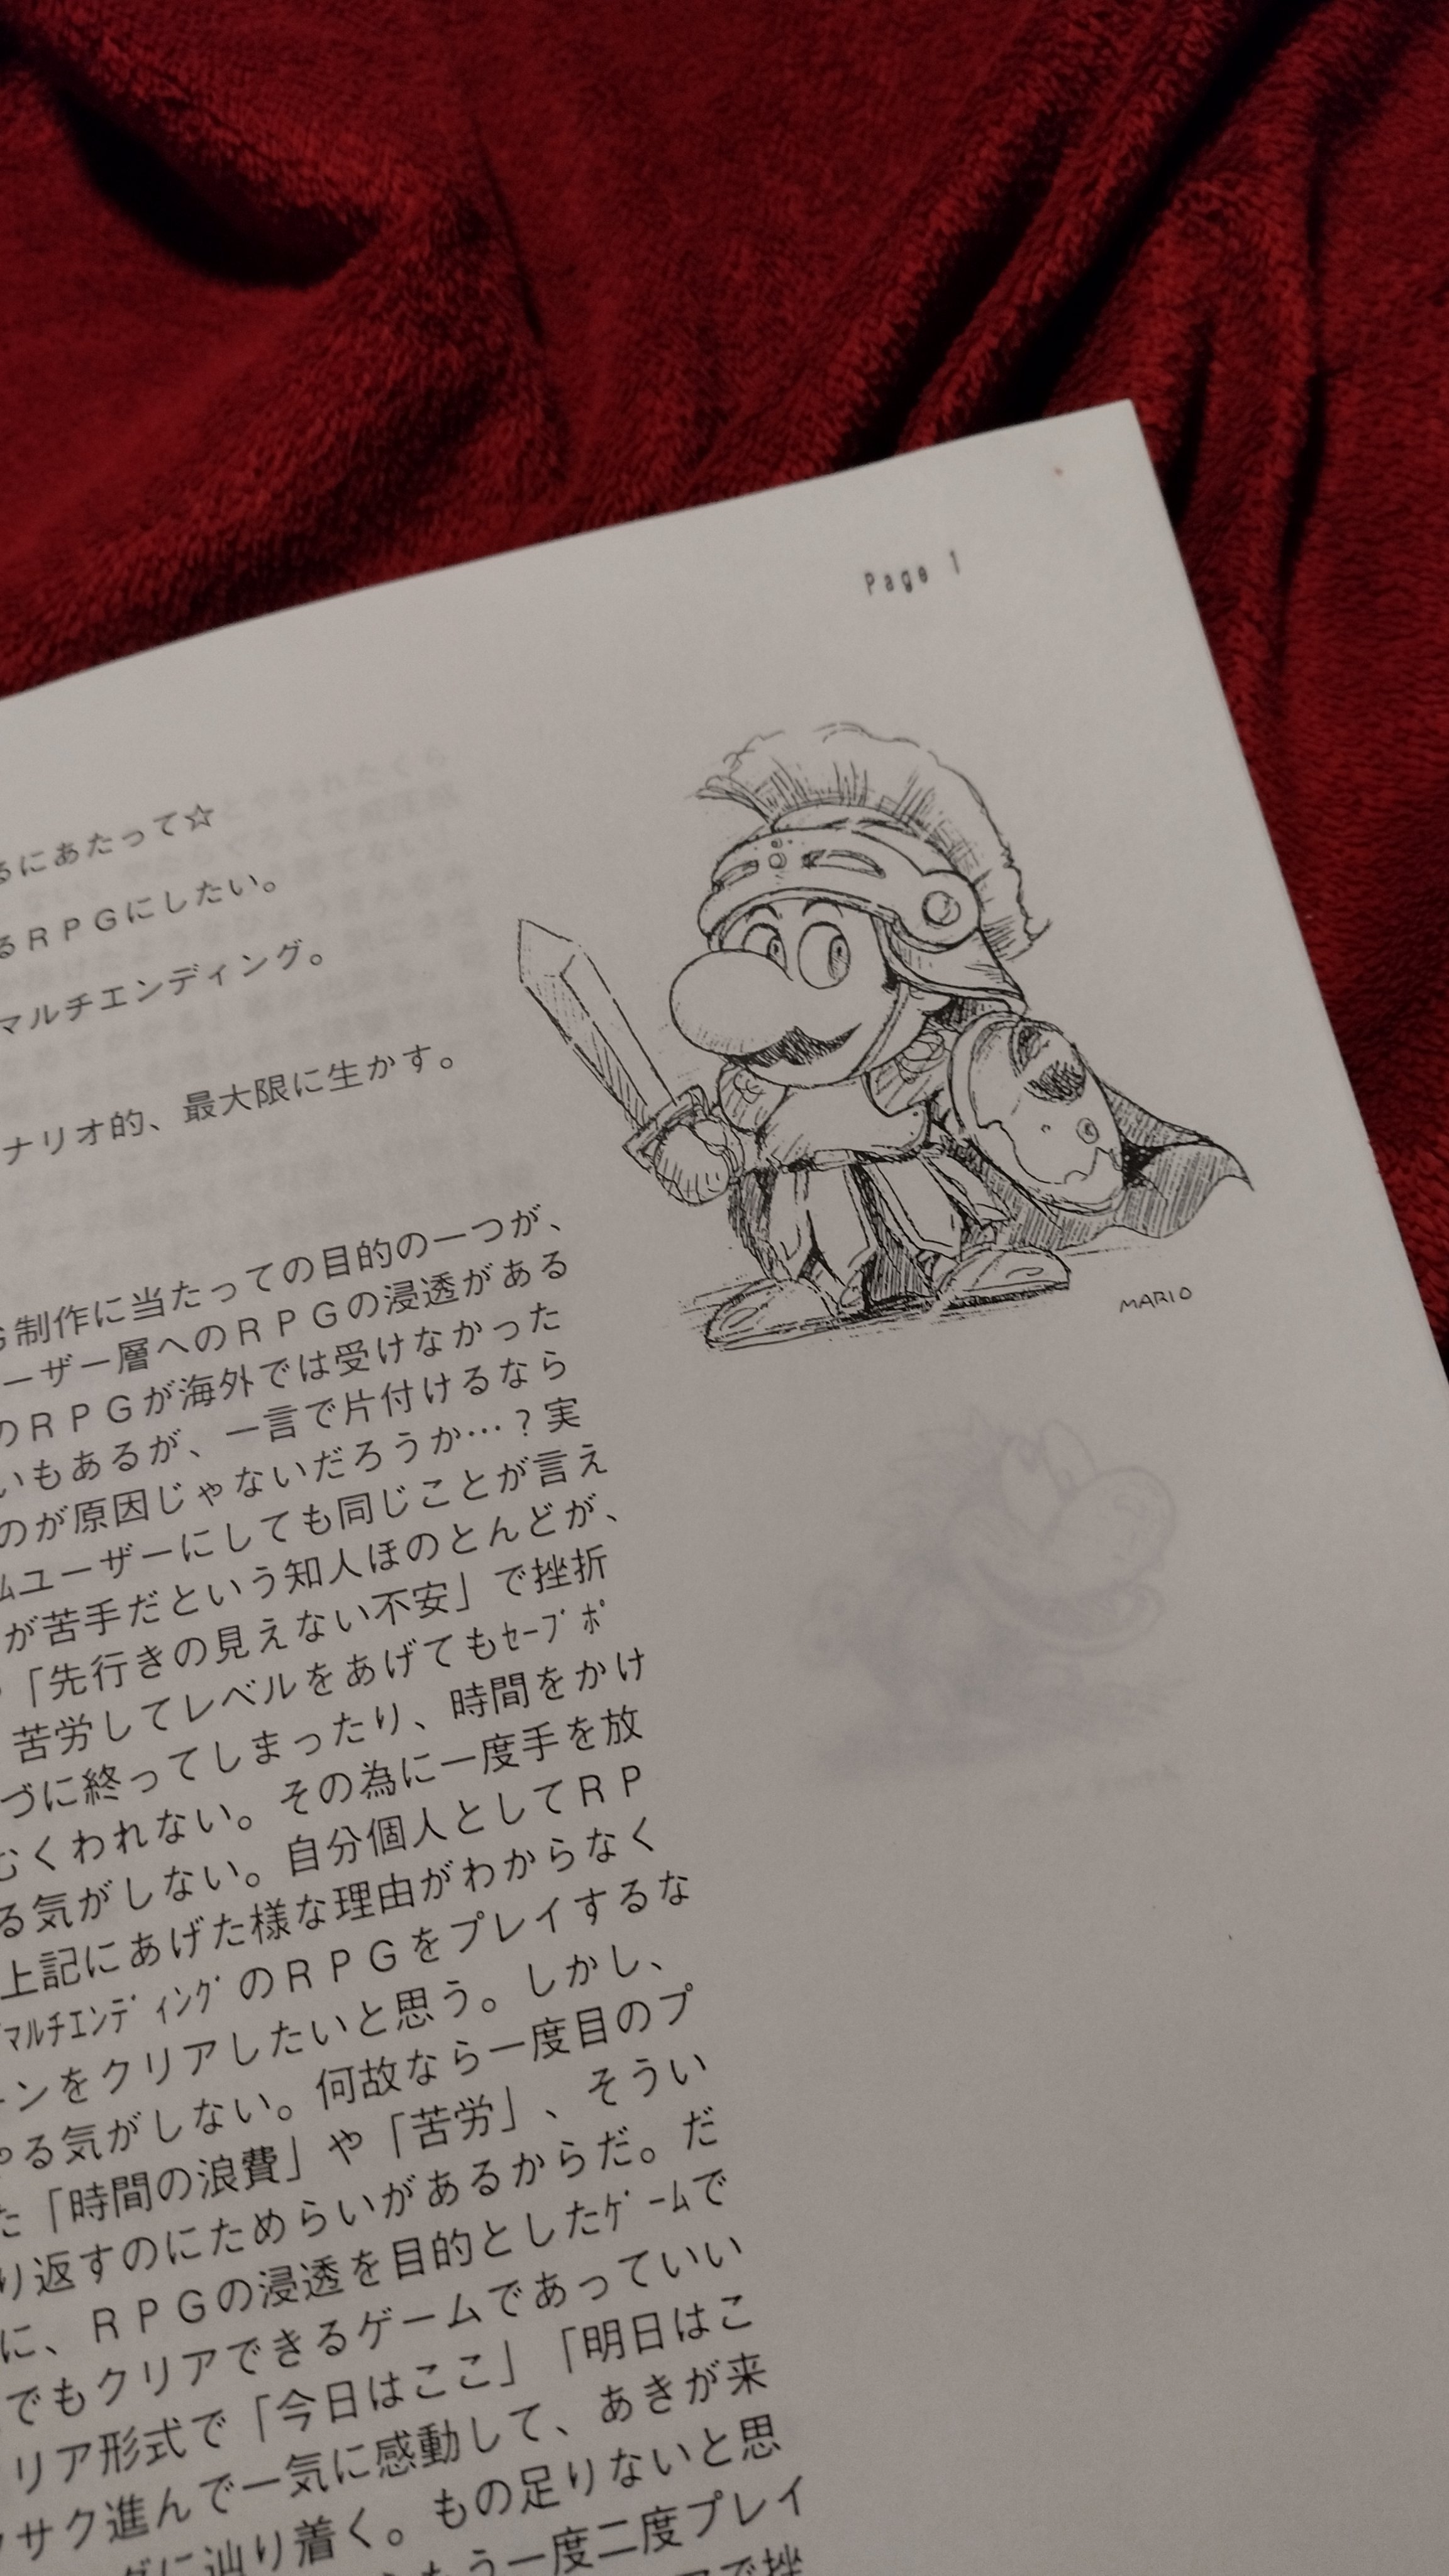 Page 1
るにあたって☆
るＲＰＧにしたい。
マルチエンディング。
ナリオ的、最大限に生かす。
MARIO
制作に当たっての目的の一つが、
ーザー層へのＲＰＧの浸透がある
のＲＰＧが海外では受けなかった
いもあるが、一言で片付けるなら
のが原因じゃないだろうか…？実
ムユーザーにしても同じことが言え
が苦手だという知人ほのとんどが、
「先行きの見えない不安」で挫折
苦労してレベルをあげてもｾｰﾌﾞﾎﾟ
づに終ってしまったり、時間をかけ
むくわれない。その為に一度手を放
る気がしない。自分個人としてＲＰ
上記にあげた様な理由がわからなく
ﾏﾙﾁｴﾝﾃﾞｨﾝｸﾞのＲＰＧをプレイするな
ーンをクリアしたいと思う。しかし、
やる気がしない。何故なら一度目のプ
た「時間の浪費」や「苦労」、そうい
り返すのにためらいがあるからだ。だ
に、ＲＰＧの浸透を目的としたｹﾞｰﾑで
でもクリアできるゲームであっていい
リア形式で「今日はここ」「明日はこ
サク進んで一気に感動して、あきが来
に辿り着く。もの足りないと思
もう一度二度プレイ
で挫